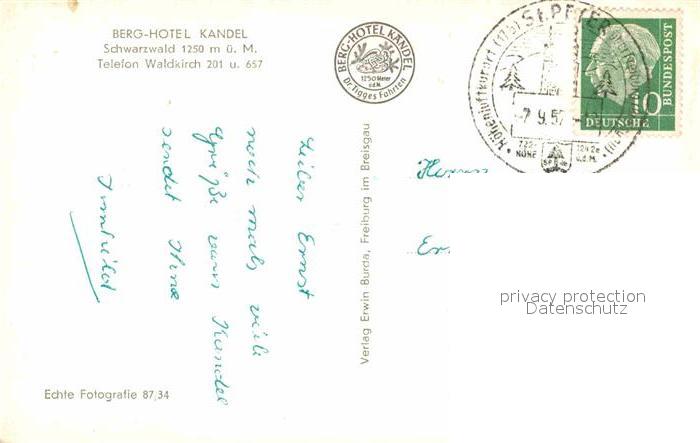 BERG-HOTEL KANDEL
Schwarzwald 1250 m ü. M.
Telefon Waldkirch 201 u. 657
BERG-HOTEL KANDEL
1250 Meter
ü.d.M.
Dr. Tigges Fahrten
Höhenluftkurort (17b) ST. PETER
-7.9.57
722-
HÖHE
1242 m
ü.d.M.
10
DEUTSCHE
BUNDESPOST
Lieber Ernst
noch mals viele
Grüße vom Kandel
sendet Ihnen
Herrn
Er.
Verlag Erwin Burda, Freiburg im Breisgau
Echte Fotografie 87,34
privacy protection
Datenschutz